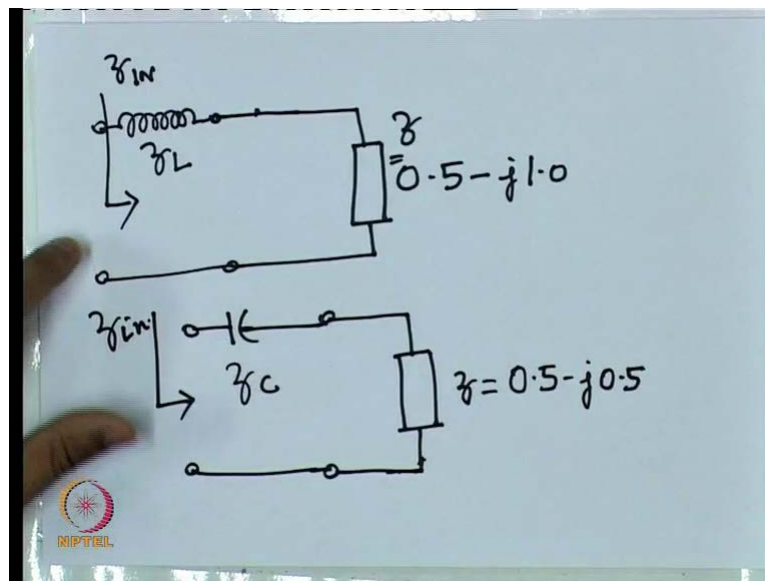 zin
zL
z
=
0.5-j1.0
zin
zc
z=0.5-j0.5
NPTEL